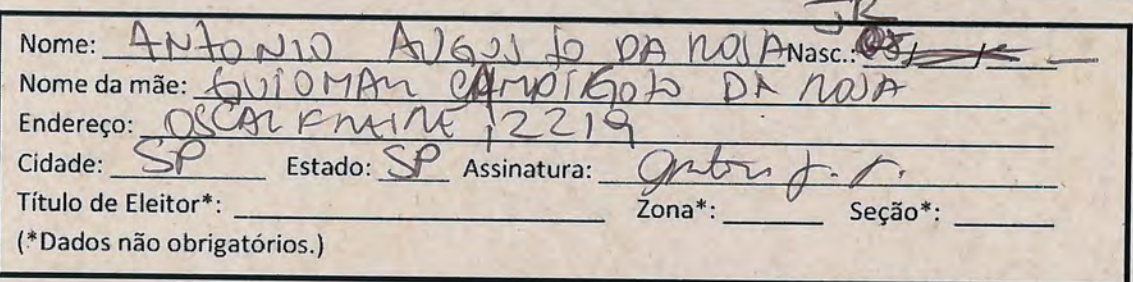 JR
Nome: ANTONIO AUGUSTO DA ROSA Nasc.:
Nome da mãe: GUIOMAR CAMPIGOTO DA ROSA
Endereço: OSCAR FREIRE, 2219
Cidade: SP Estado: SP Assinatura:
Título de Eleitor*: Zona*: Seção*:
(*Dados não obrigatórios.)